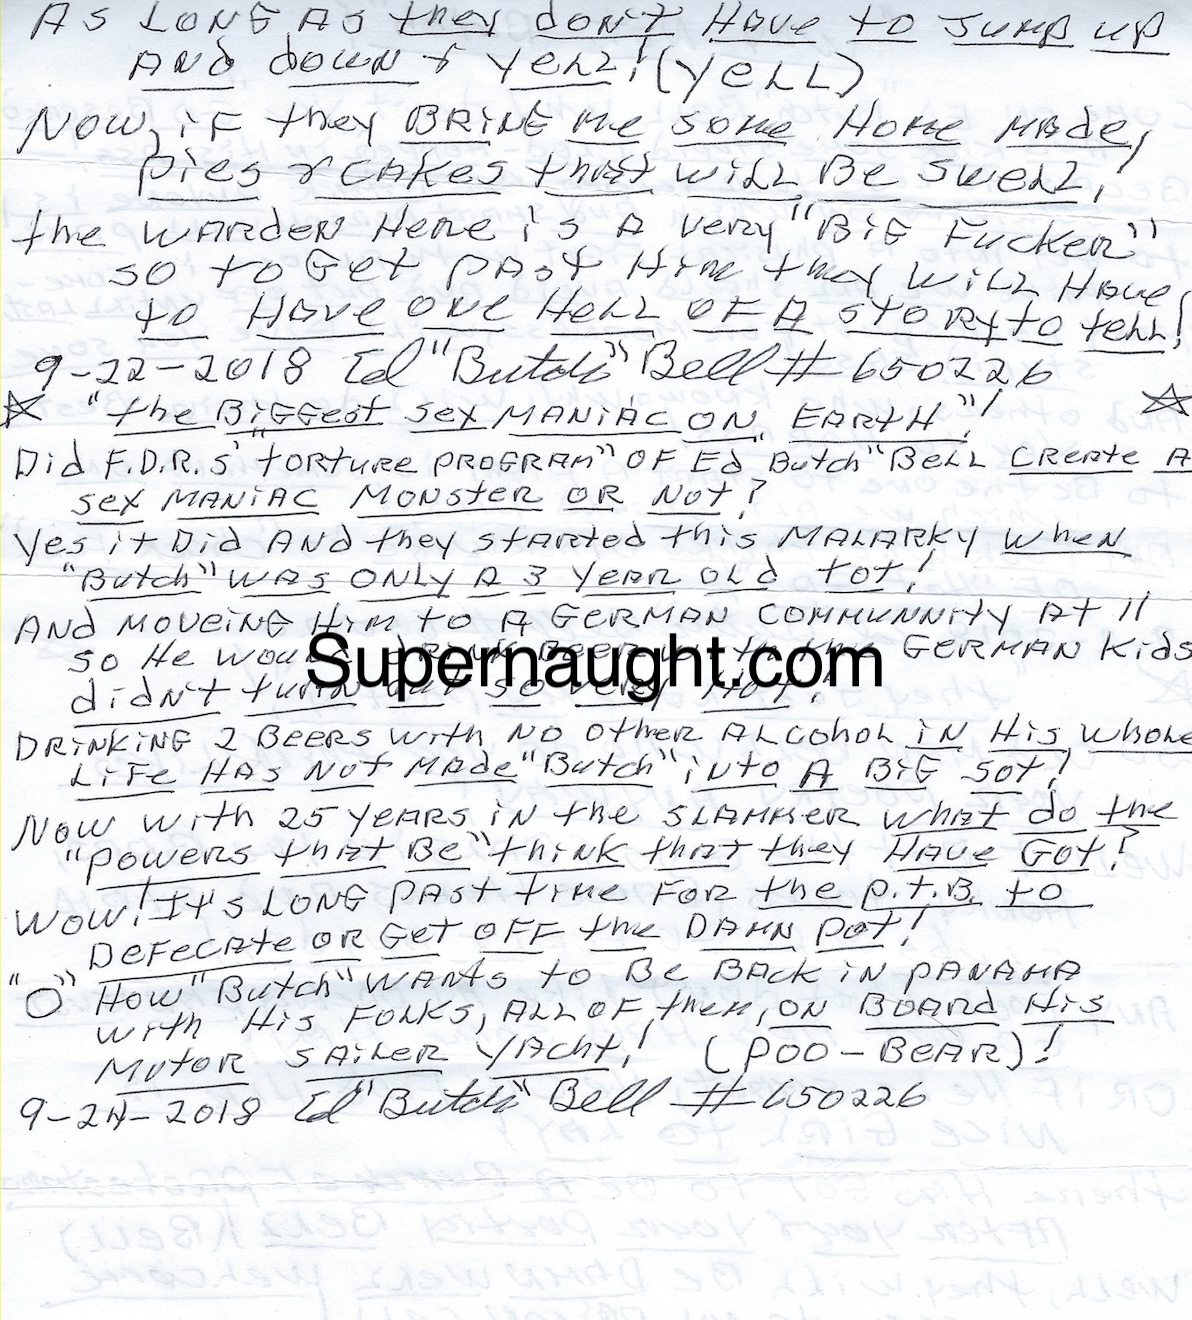 AS LONG AS they don't HAVE to JUMP UP
AND down & yeLL! (yeLL)
NOW, iF they BRiNG Me some Home Made,
Pies & CAKes thAt wiLL Be sweLL!
the WARDEN Here is A very "BiG Fucker"
so to Get pAst Him they wiLL HAve
to HAve one HeLL OF A story to teLL!
9-22-2018 Ed "Butch" Bell #650226
☆ "the BiGGest sex MANiAC ON EARTH"! ☆
Did F.D.R.s "torture PROGRAM" OF Ed "Butch" BeLL CReAte A
sex MANiAC MONSTER OR Not?
Yes it Did AND they stARted this MALARKY wheN
"Butch" WAS ONLY A 3 YeAR OLd tot!
AND MOVEiNG HiM to A GERMAN COMMUNNity At 11
so He wou DRiNK BeeR with the GERMAN Kids
didn't turn out so very Hot!
DRiNKiNG 2 BeeRs with NO OtheR ALcohoL iN His whoLe
LiFe HAS Not MAde "Butch" iNto A BiG sot!
Now with 25 YeARs iN the SLAMMER whAt do the
"powers thAt Be" thiNK thAt they HAve Got?
WOW! It's LONG PAst time FOR the P.T.B. to
DeFecAte OR Get OFF the DAMN pot!
"O" How "Butch" WANts to Be BAck iN PANAMA
with His FOLKS, ALL OF them, ON BOARD His
MOtOR SAiLeR YAcht! (POO-BeAR)!
9-24-2018 Ed "Butch" Bell #650226
Supernaught.com